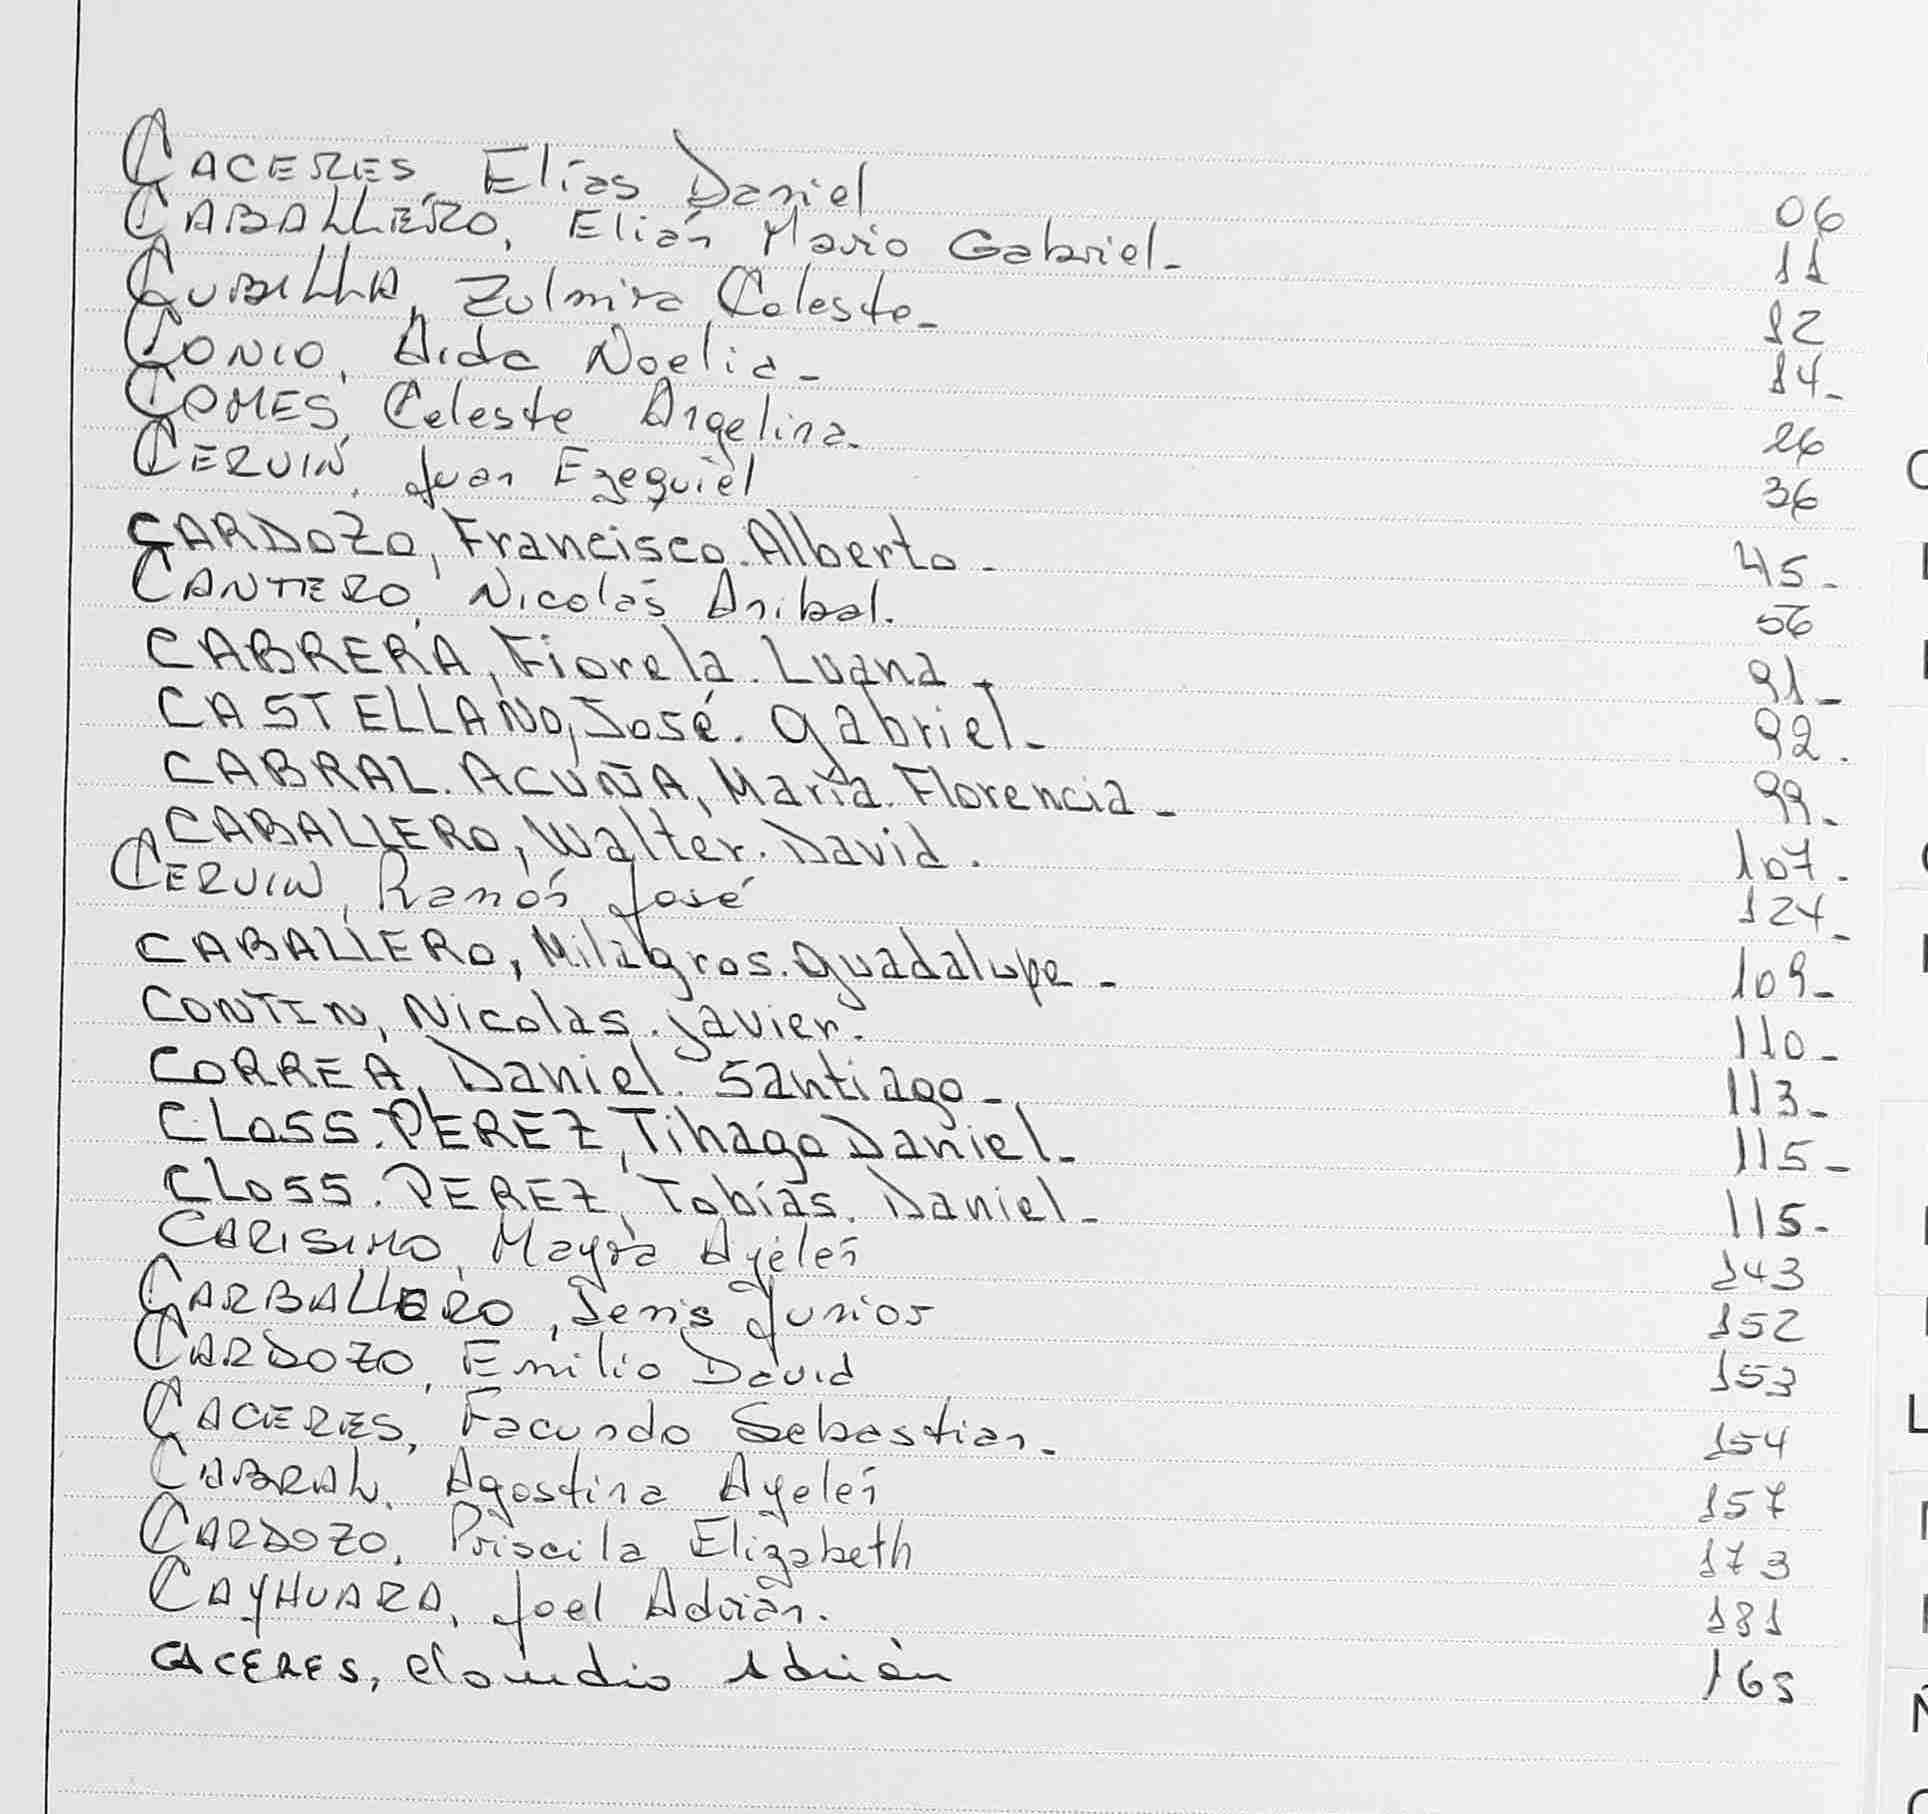 CACERES, Elías Daniel 06
CABALLERO, Elián Mario Gabriel- 11
CUBILLA, Zulmira Celeste- 12
CONIO, Aida Noelia- 14-
COMES, Celeste Angelina. 26
CERVIN, Juan Ezequiel 36
CARDOZO, Francisco. Alberto- 45-
CANTERO, Nicolás Anibal. 56
CABRERA, Fiorela. Luana- 91-
CASTELLANO, José. Gabriel- 92.
CABRAL. ACUÑA, María. Florencia- 99-
CABALLERO, Walter. David. 107.
CERVIN, Ramón José 124-
CABALLERO, Milagros. Guadalupe- 109-
CONTIN, Nicolas. Javier. 110-
CORREA, Daniel. Santiago- 113-
CLOSS. PEREZ, Tihago Daniel- 115-
CLOSS. PEREZ, Tobías. Daniel- 115-
CARISIMO, Mayra Ayelén 143
CARBALLERO, Denis Junior 152
CARDOZO, Emilio David 153
CACERES, Facundo Sebastian- 154
CABRAL, Agostina Ayelén 157
CARDOZO, Priscila Elizabeth 173
CAYHUARA, Joel Adrián. 181
CACERES, Claudio Adrián 165